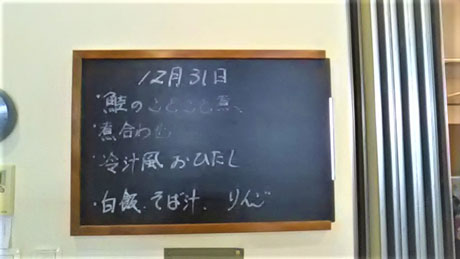 12月31日
・鮭のことこと煮
・煮合わせ
・冷汁風おひたし
・白飯、そば汁、りんご